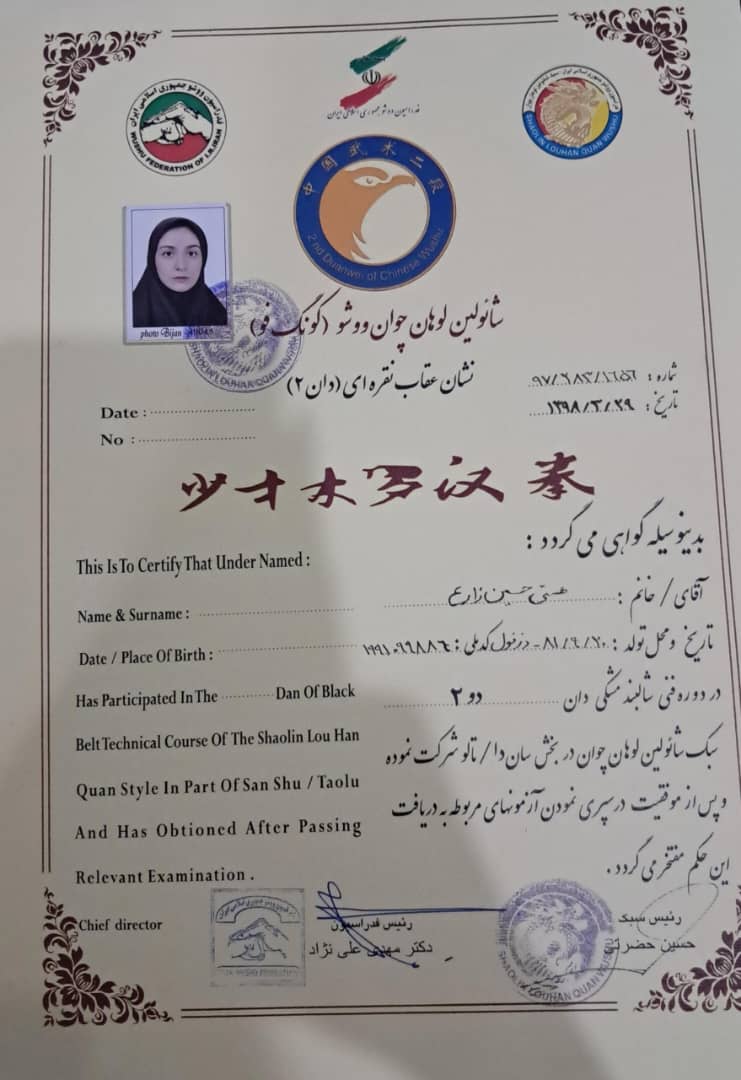 فدراسیون ووشو جمهوری اسلامی ایران
WUSHU FEDERATION OF I.R.IRAN
فدراسیون ووشو جمهوری اسلامی ایران
SHAOLIN LOUHAN QUAN WUSHU
中国武术二段
2nd Duanwei of Chinese Wushu
photo Bijan
شائولین لوهان چوان ووشو (کونگ فو)
نشان عقاب نقره ای (دان ۲)
شماره :
تاریخ : ۱۳۹۸/۳/۲۹
Date :
No :
少林罗汉拳
بدینوسیله گواهی می گردد :
This Is To Certify That Under Named :
آقای / خانم : حسین زارع
Name & Surname :
تاریخ و محل تولد : ۸۱/۹/۲۰ - دزفول کد ملی : ۱۹۹۱۰۹۶۸۸۶
Date / Place Of Birth :
در دوره فنی شالبند مشکی دان دو ۲
Has Participated In The Dan Of Black
سبک شائولین لوهان چوان در بخش سان دا / تالو شرکت نموده
Belt Technical Course Of The Shaolin Lou Han
و پس از موفقیت در سپری نمودن آزمونهای مربوطه به دریافت
Quan Style In Part Of San Shu / Taolu
این حکم مفتخر می گردد .
And Has Obtioned After Passing
Relevant Examination .
Chief director
رئیس فدراسیون
دکتر مهدی علی نژاد
رئیس سبک
حسین حضرتی
SHAOLIN LOUHAN QUAN WUSHU